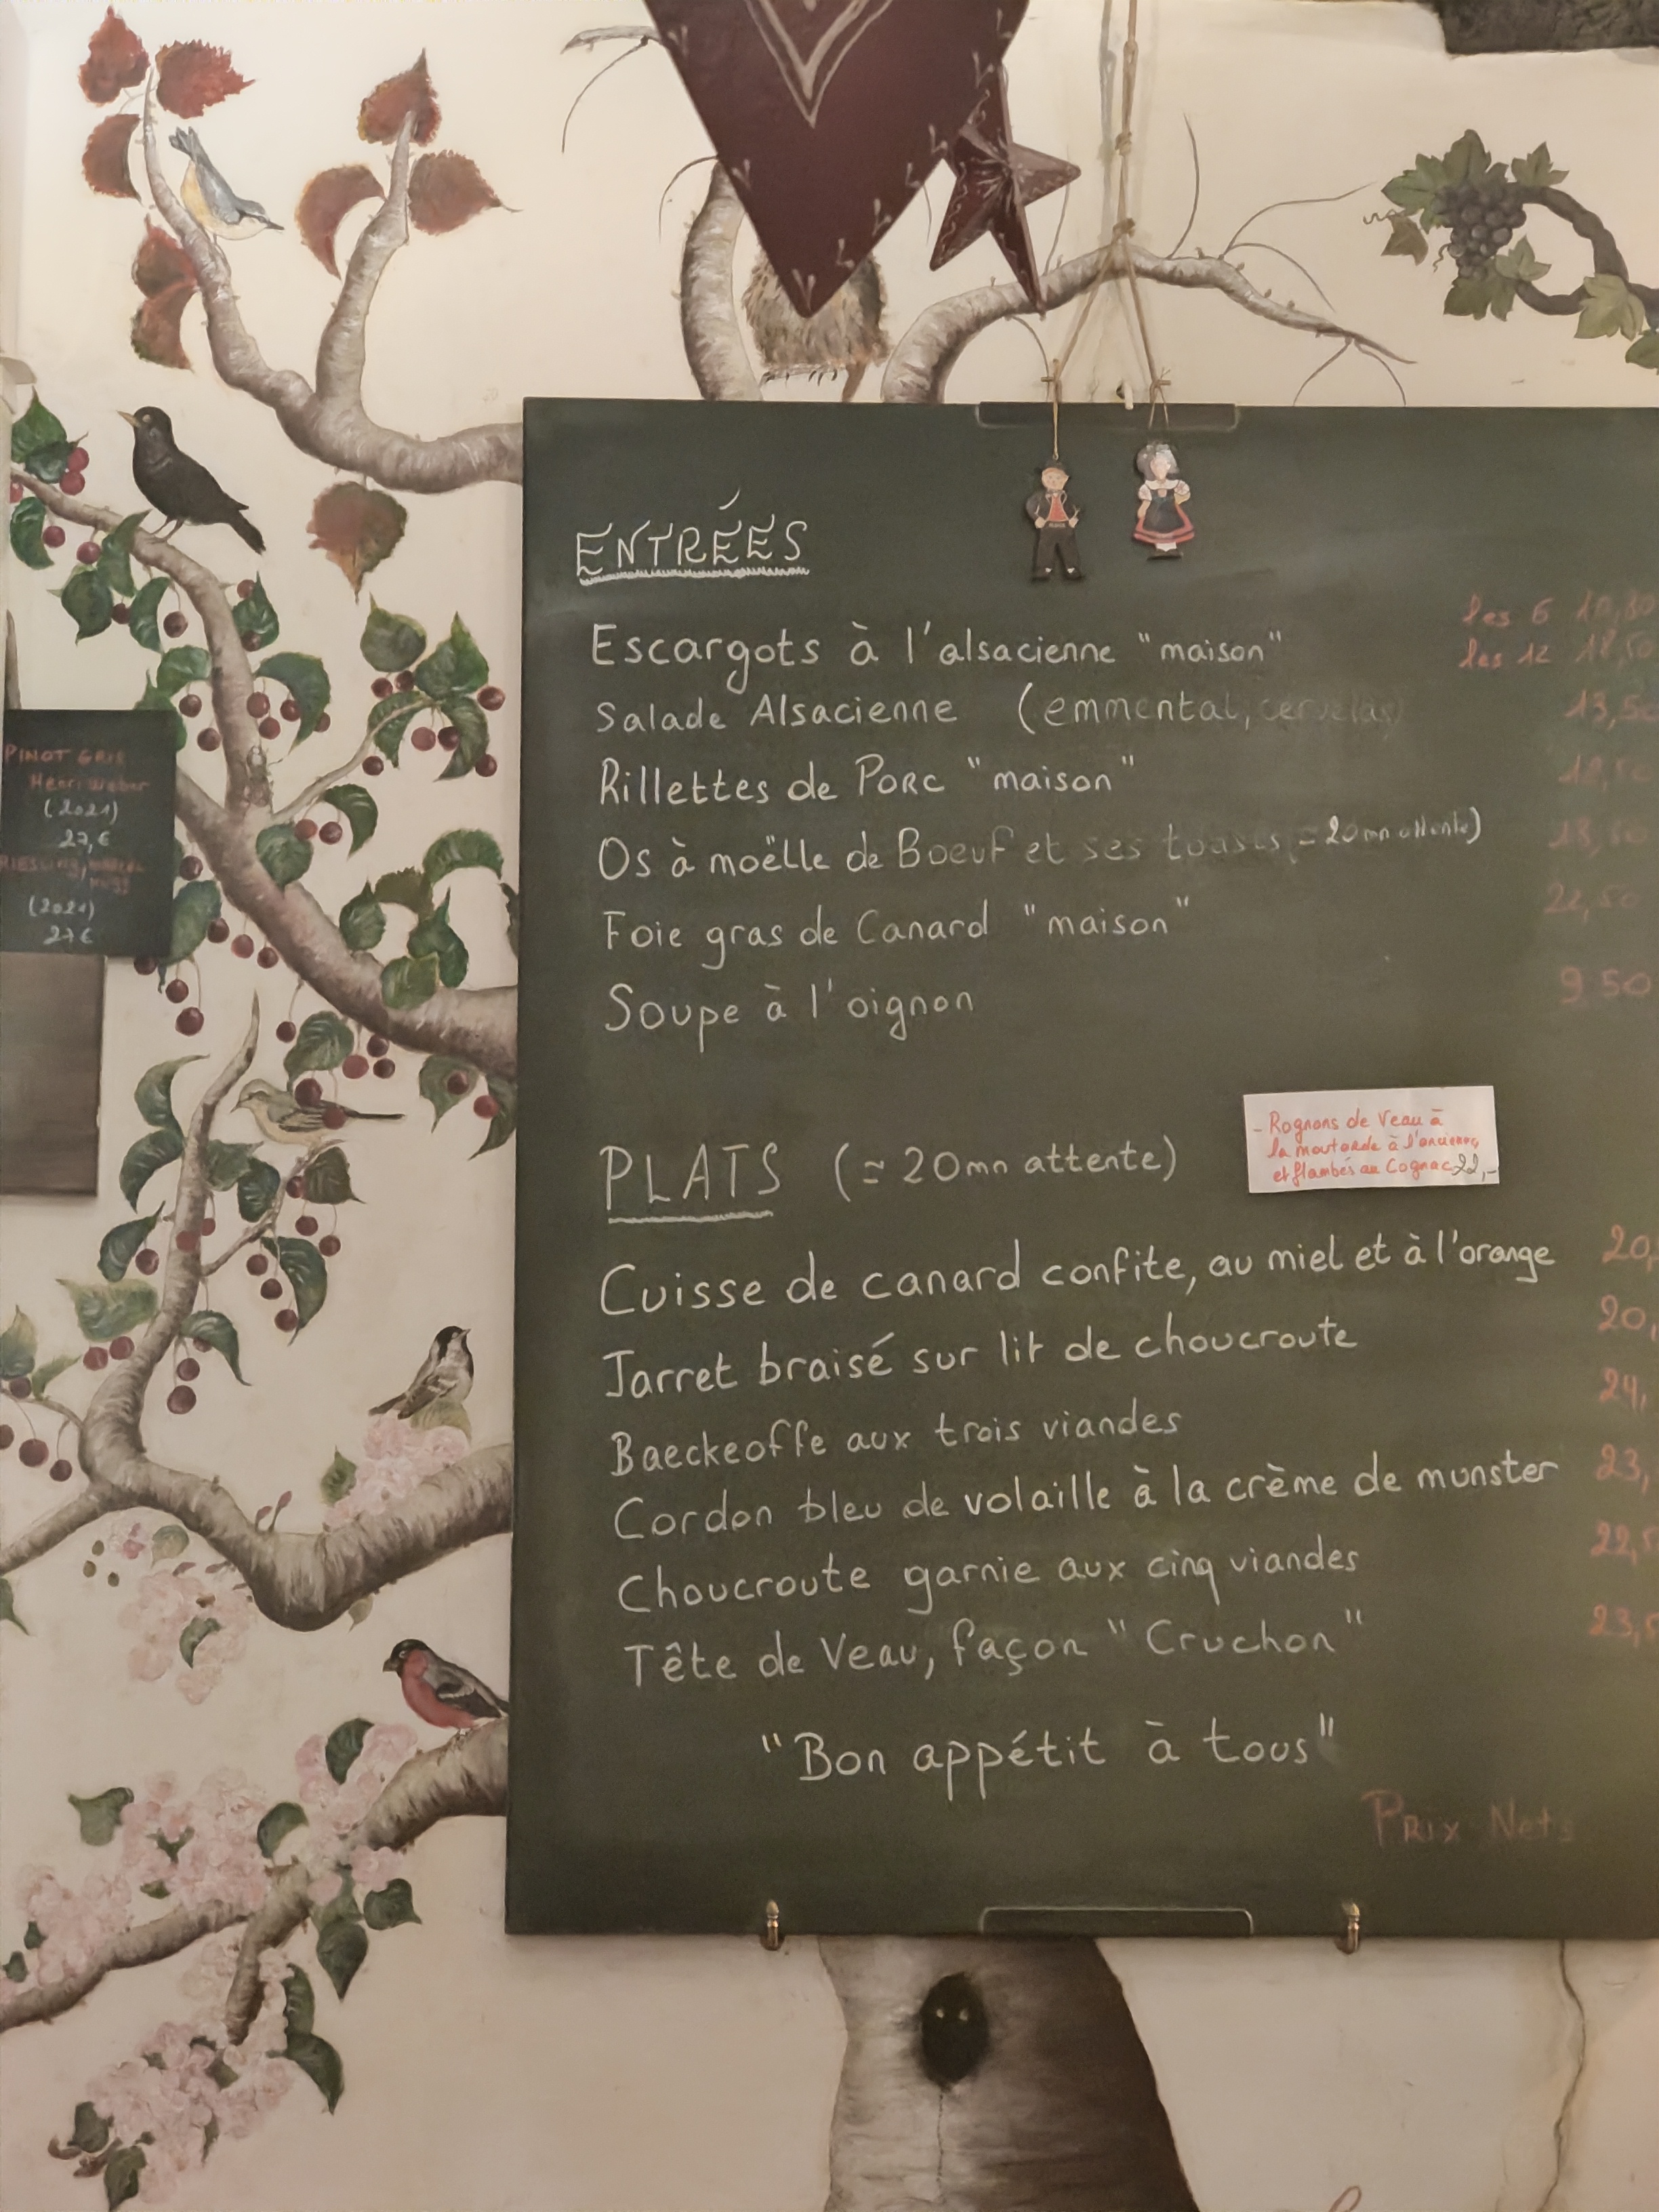 PINOT GRIS
Henri Weber
(2021)
27,€
RIESLING,
(2021)
27€
ENTRÉES
les 6
Escargots à l'alsacienne "maison" les 12 18,50
Salade Alsacienne (emmental, cervelas) 13,50
Rillettes de Porc "maison"
Os à moëlle de Boeuf et ses toasts = 20mn attente)
Foie gras de Canard "maison"
Soupe à l'oignon 9 50
PLATS (= 20mn attente)
- Rognons de Veau à
la moutarde à l'ancienne,
et flambés au Cognac 22,-
Cuisse de canard confite, au miel et à l'orange 20,
Jarret braisé sur lit de choucroute 20,
Baeckeoffe aux trois viandes 24,
Cordon bleu de volaille à la crème de munster 23,
Choucroute garnie aux cinq viandes 22,5
Tête de Veau, façon "Cruchon" 23,5
"Bon appétit à tous"
Prix Nets